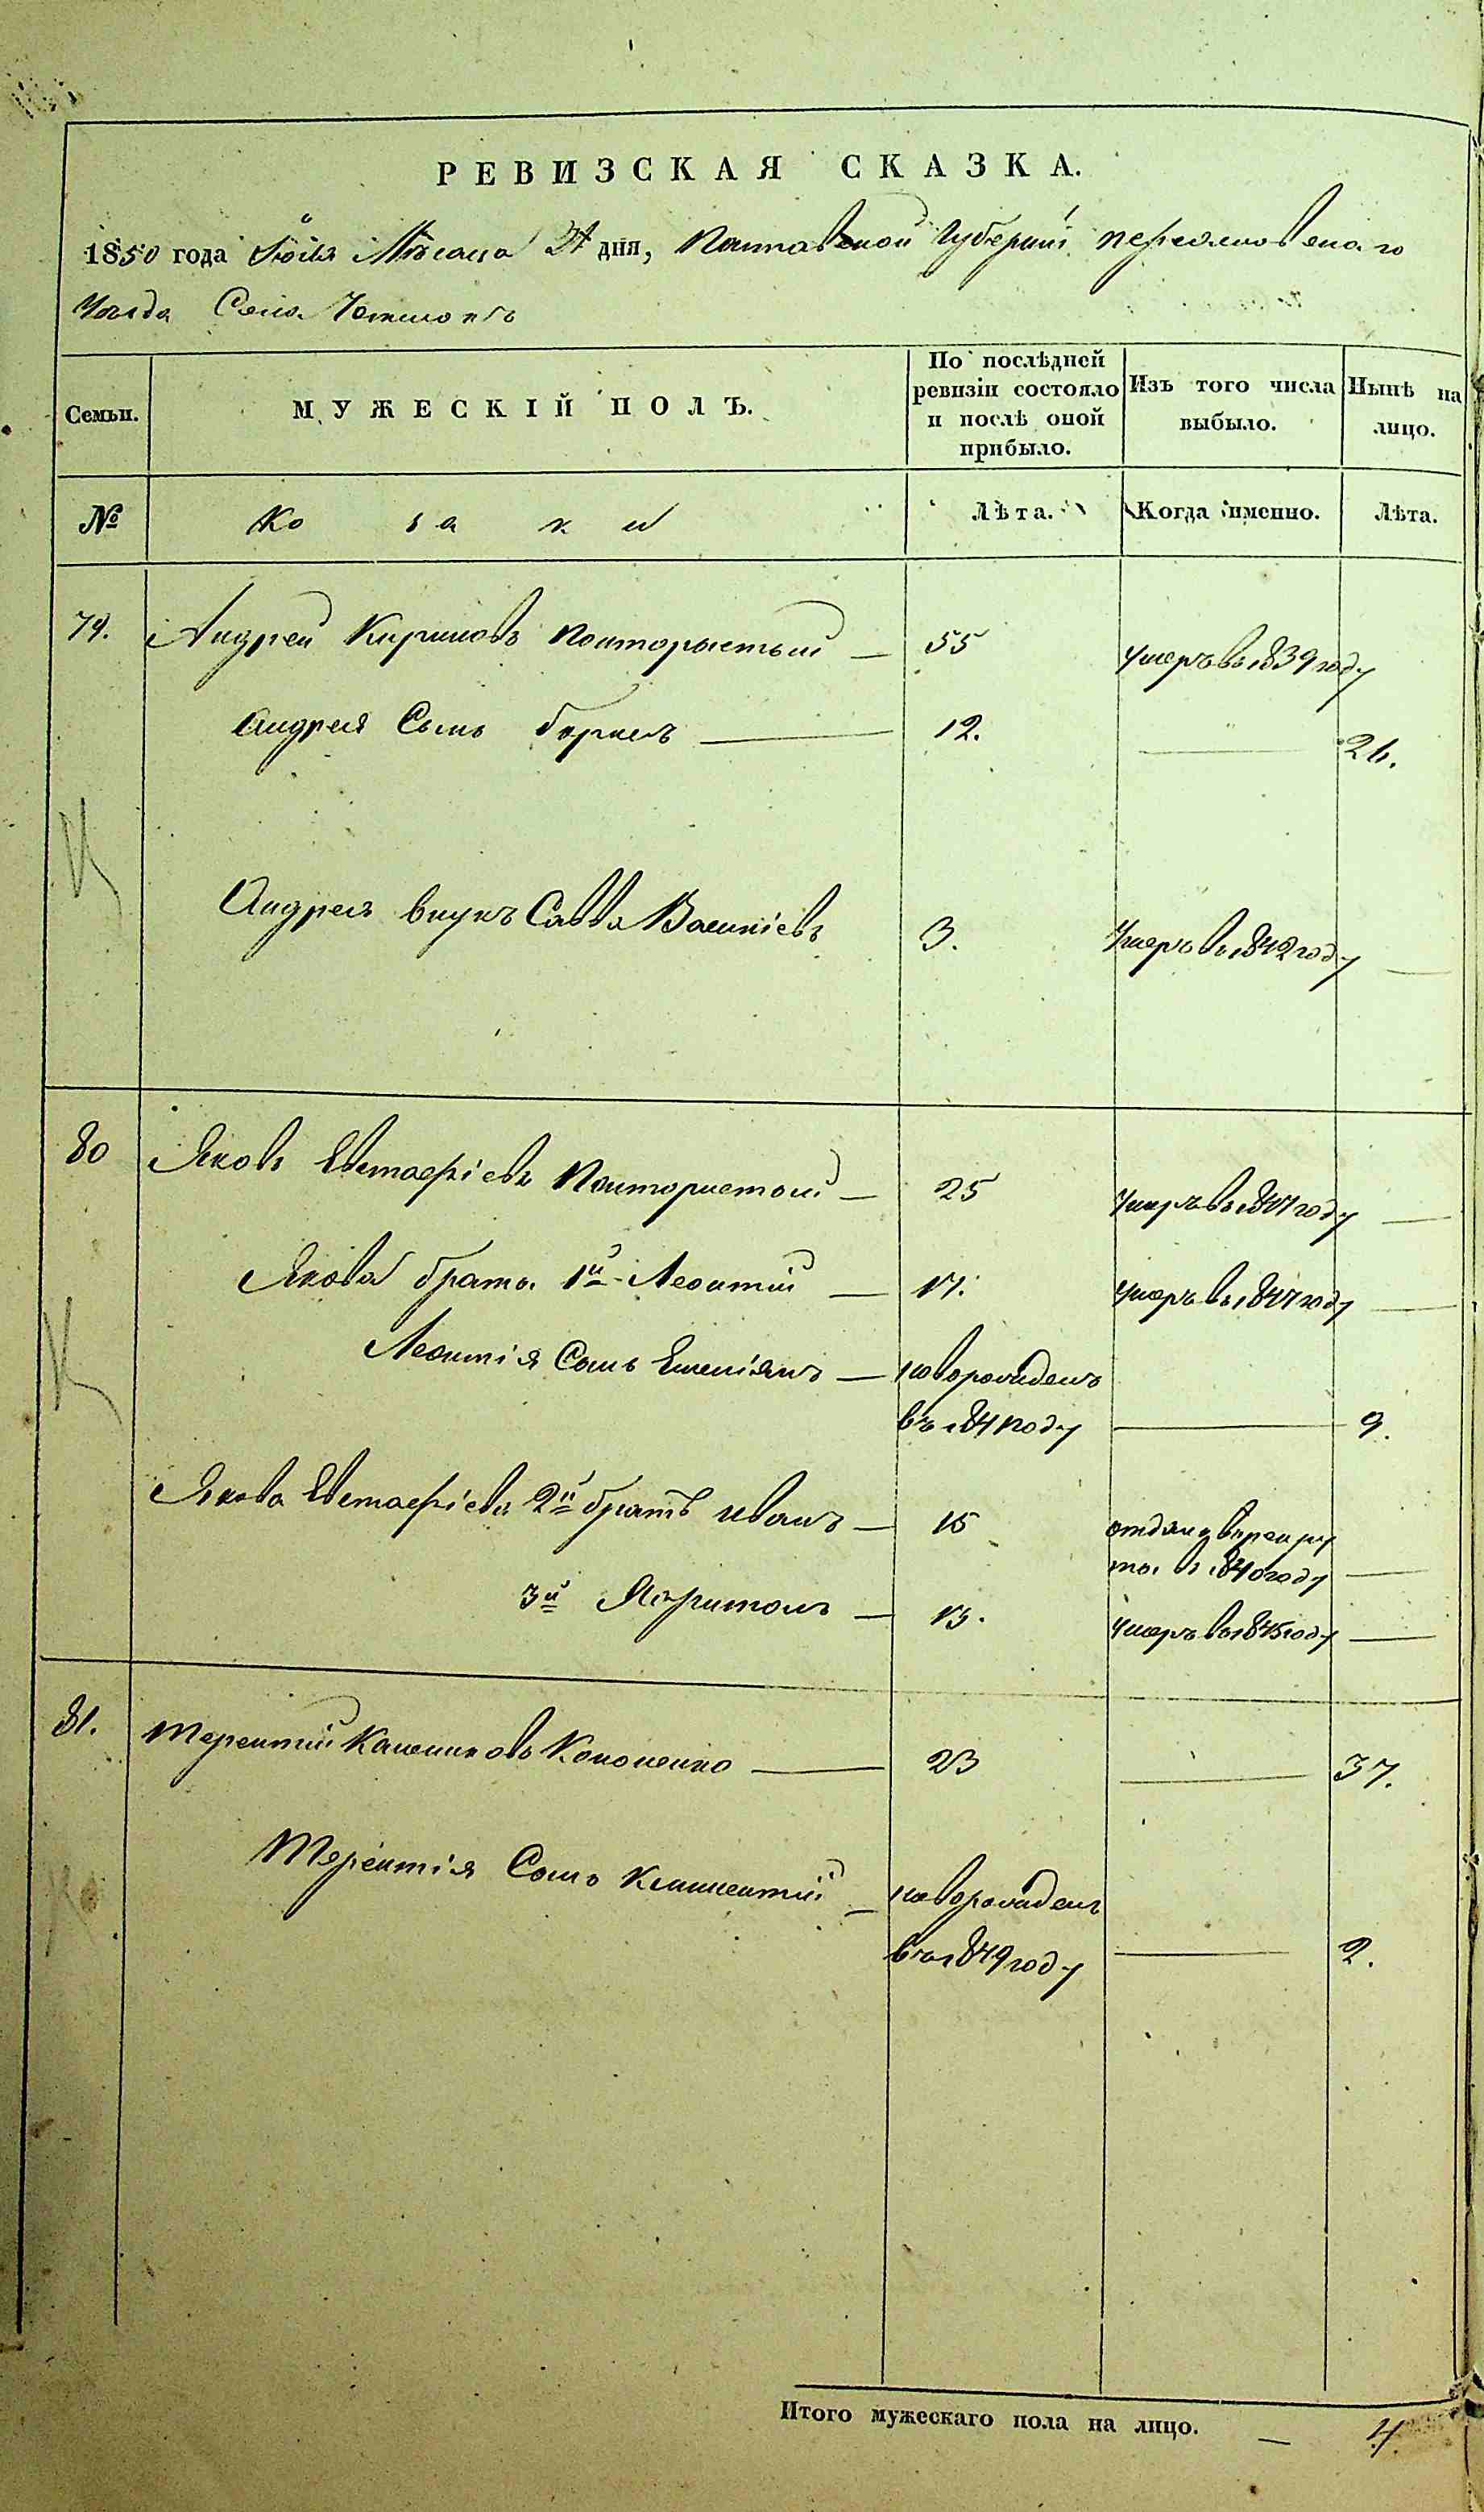 РЕВИЗСКАЯ СКАЗКА.
1850 года Іюля Мѣсяца дня, Полтавской Губерніи переяславскаго
Уѣзда Села
Семьи.
МУЖЕСКІЙ ПОЛЪ.
По послѣдней ревизіи состояло и послѣ оной прибыло.
Изъ того числа выбыло.
Нынѣ на лицо.
№
Козаки
Лѣта.
Когда именно.
Лѣта.
79. Андрей Кириловъ Полторыстый — 55 умеръ въ 1839 году
Андрея Сынъ — 12. — 26.
Андрея внукъ Савва Василіевъ 3. Умеръ въ 1842 году —
80 Яковъ Евстафіевъ Полторыстый — 25 Умеръ въ 1847 году —
Якова братъ 1й Леонтій — 17. умеръ въ 1847 году —
Леонтія Сынъ Емеліянъ — новорожденъ
въ 1841 году — 9.
Якова Евстафіева 2й братъ Иванъ — 15 отданъ в рекру
ты въ 1840 году —
3й Харитонъ — 13. Умеръ въ 1845 году —
81. Терентій Кононенко — 23 — 37.
Терентія Сынъ Климентій — новорожденъ
въ 1849 году — 2.
Итого мужескаго пола на лицо. — 4.